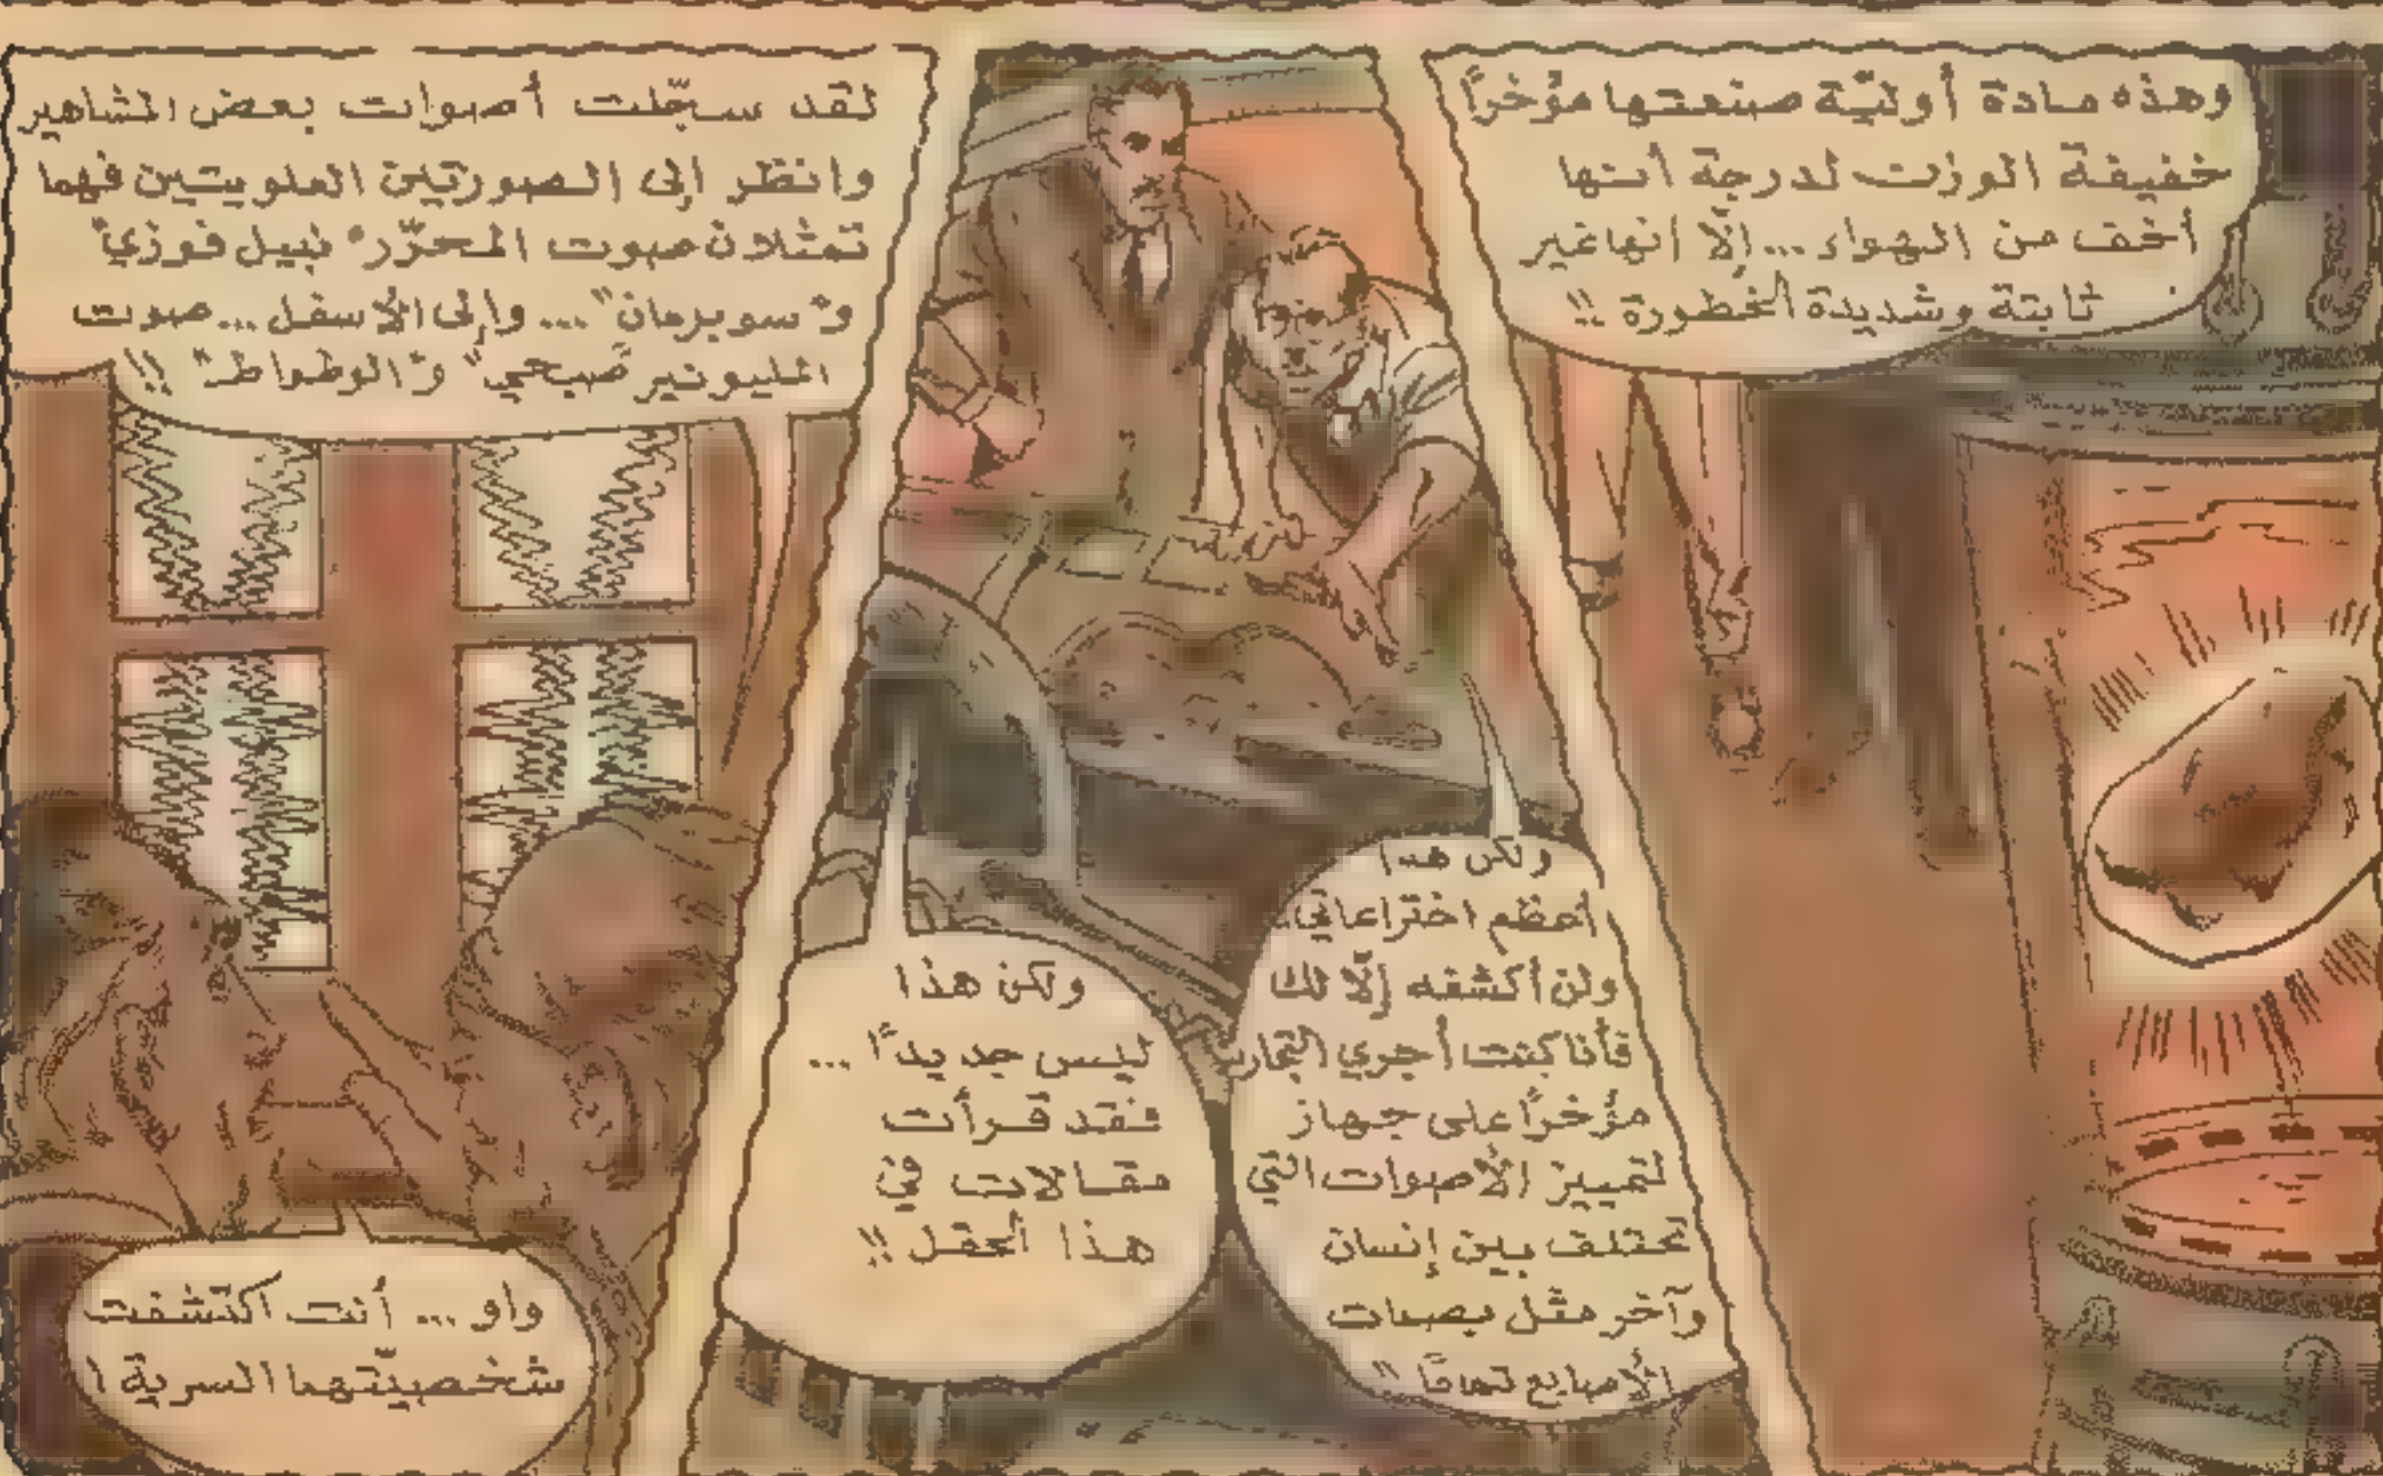 وهذه مادة أوليّة صنعتها مؤخراً
خفيفة الوزن لدرجة أنها
أخف من الهواء... إلّا أنها غير
ثابتة وشديدة الخطورة !!
ولكن هذا
أعظم اختراعاتي..
ولن أكشفه إلّا لك
فأنا كنت أجري التجارب
مؤخراً على جهاز
لتمييز الأصوات التي
تختلف بين إنسان
وآخر مثل بصمات
الأصابع تماماً !!
ولكن هذا
ليس جديداً ...
فقد قرأت
مقالات في
هذا الحقل !!
لقد سجّلت أصوات بعض المشاهير
وانظر إلى الصورتين العلويتين فهما
تمثلان صوت المحرّر "نبيل فوزي"
و"سوبرمان" ... وإلى الأسفل ... صوت
المليونير "صبحي" و"الوطواط" !!
واو ... أنت اكتشفت
شخصيّتهما السرية !